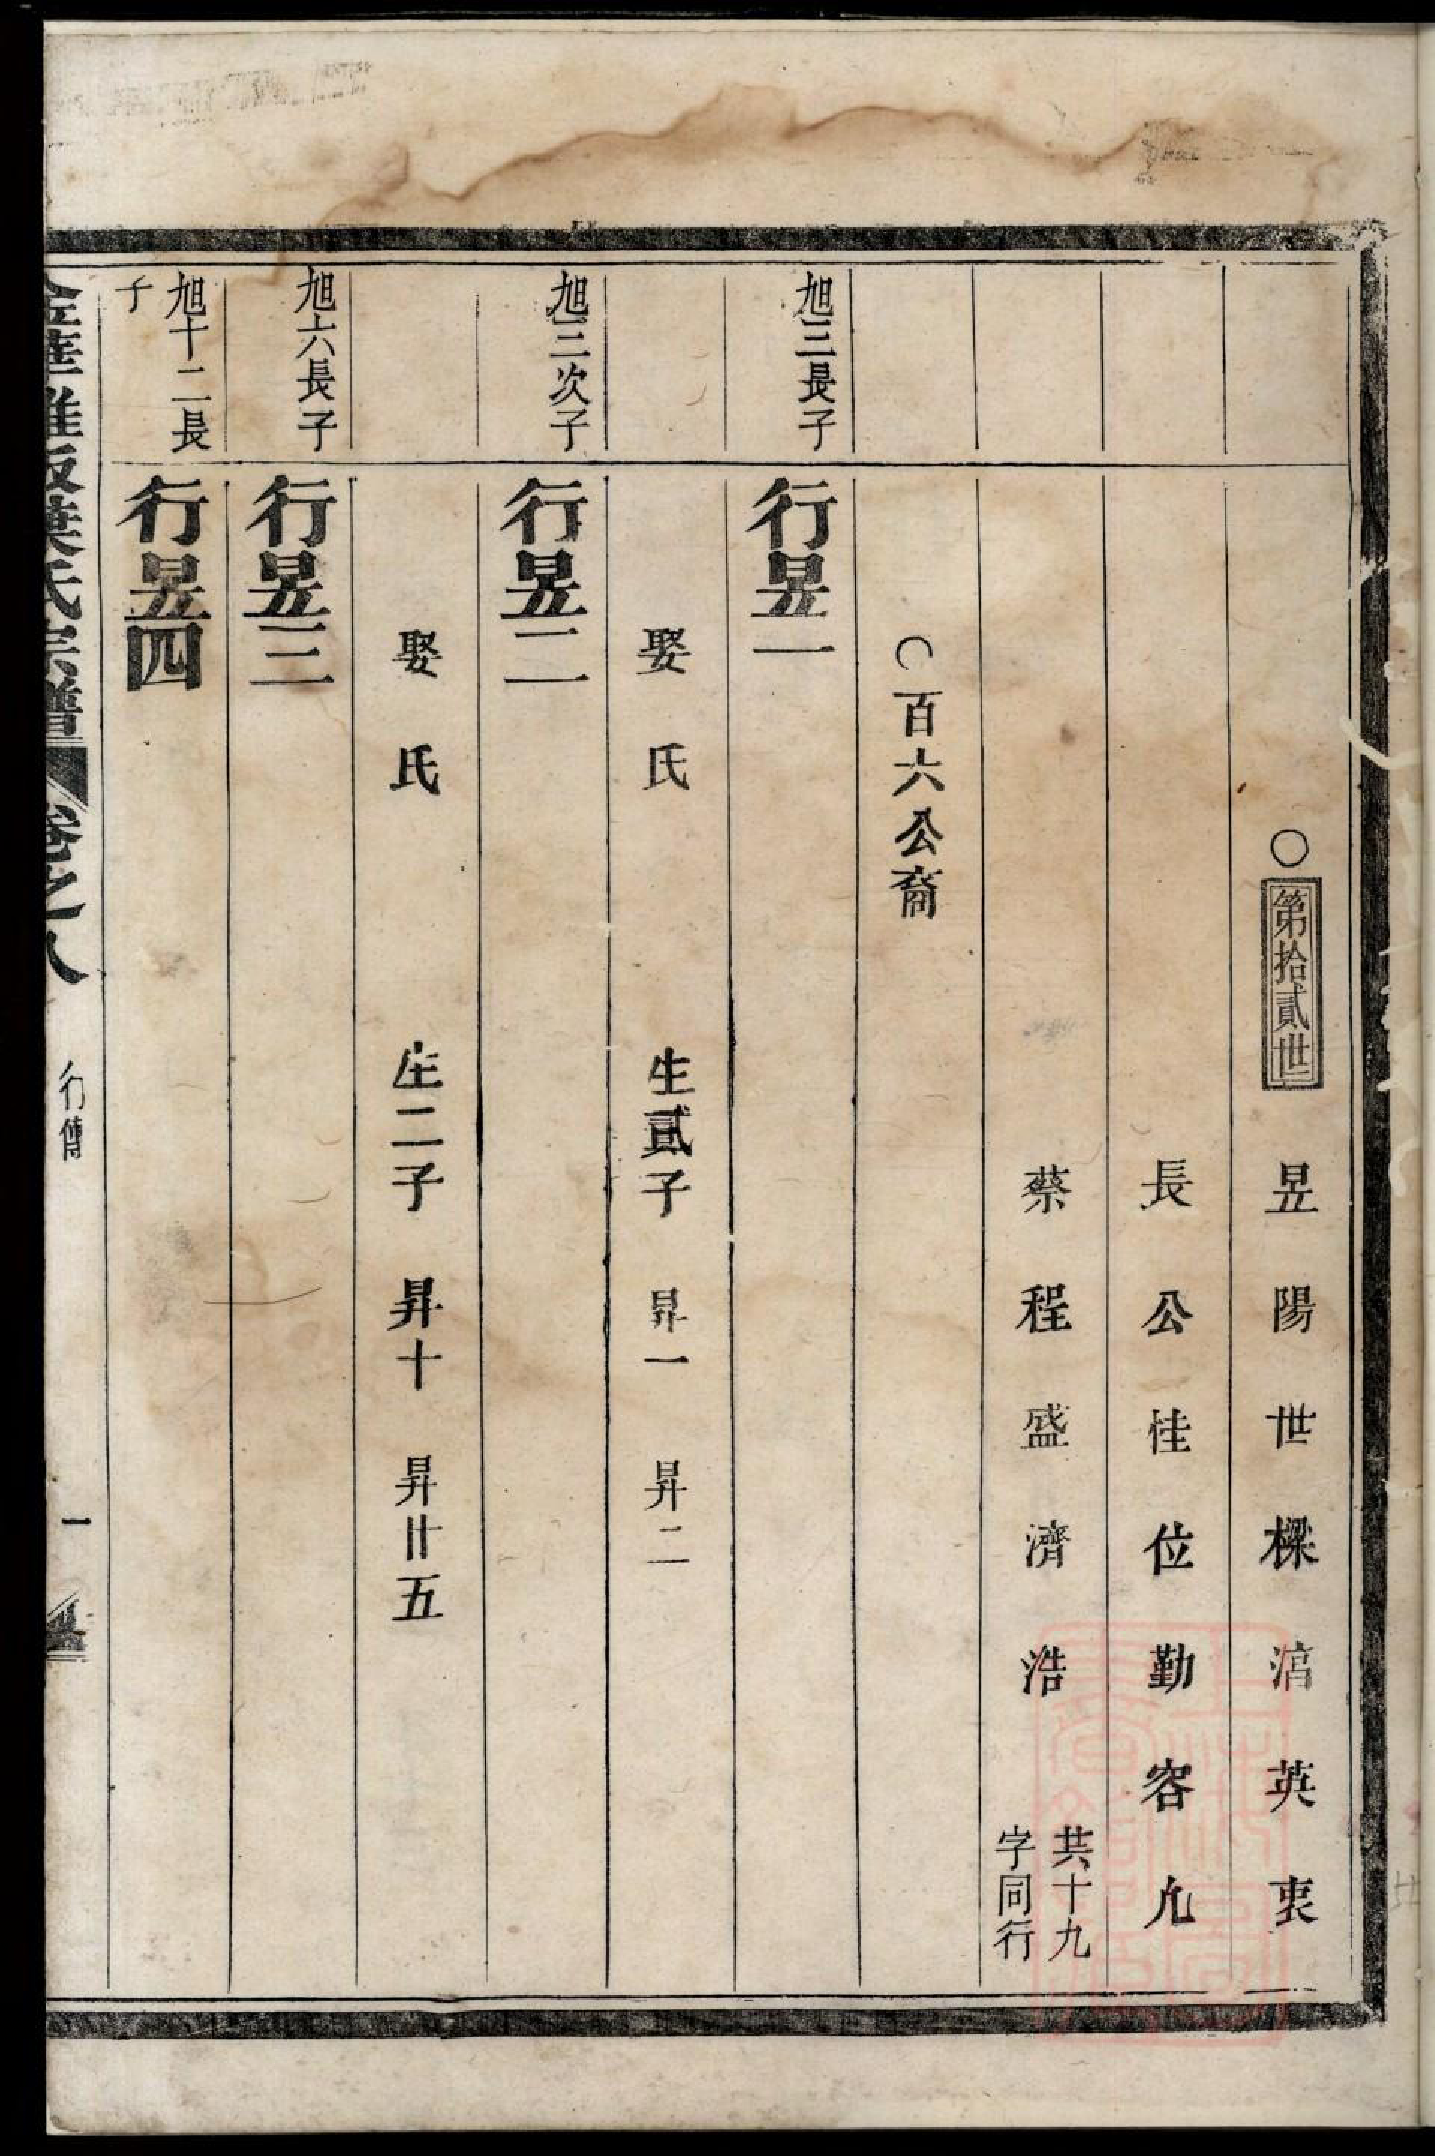 ○第拾貳世 昱陽世樑湻英衷
長公佳位勤容允
蔡程盛濟浩 共十九
字同行
○百六公裔
旭三長子 行昱一
娶氏 生貳子 昇一 昇二
旭三次子 行昱二
娶氏 生二子 昇十 昇廿五
旭六長子 行昱三
旭十二長
子 行昱四
氏宗譜 卷之八 行傳 一